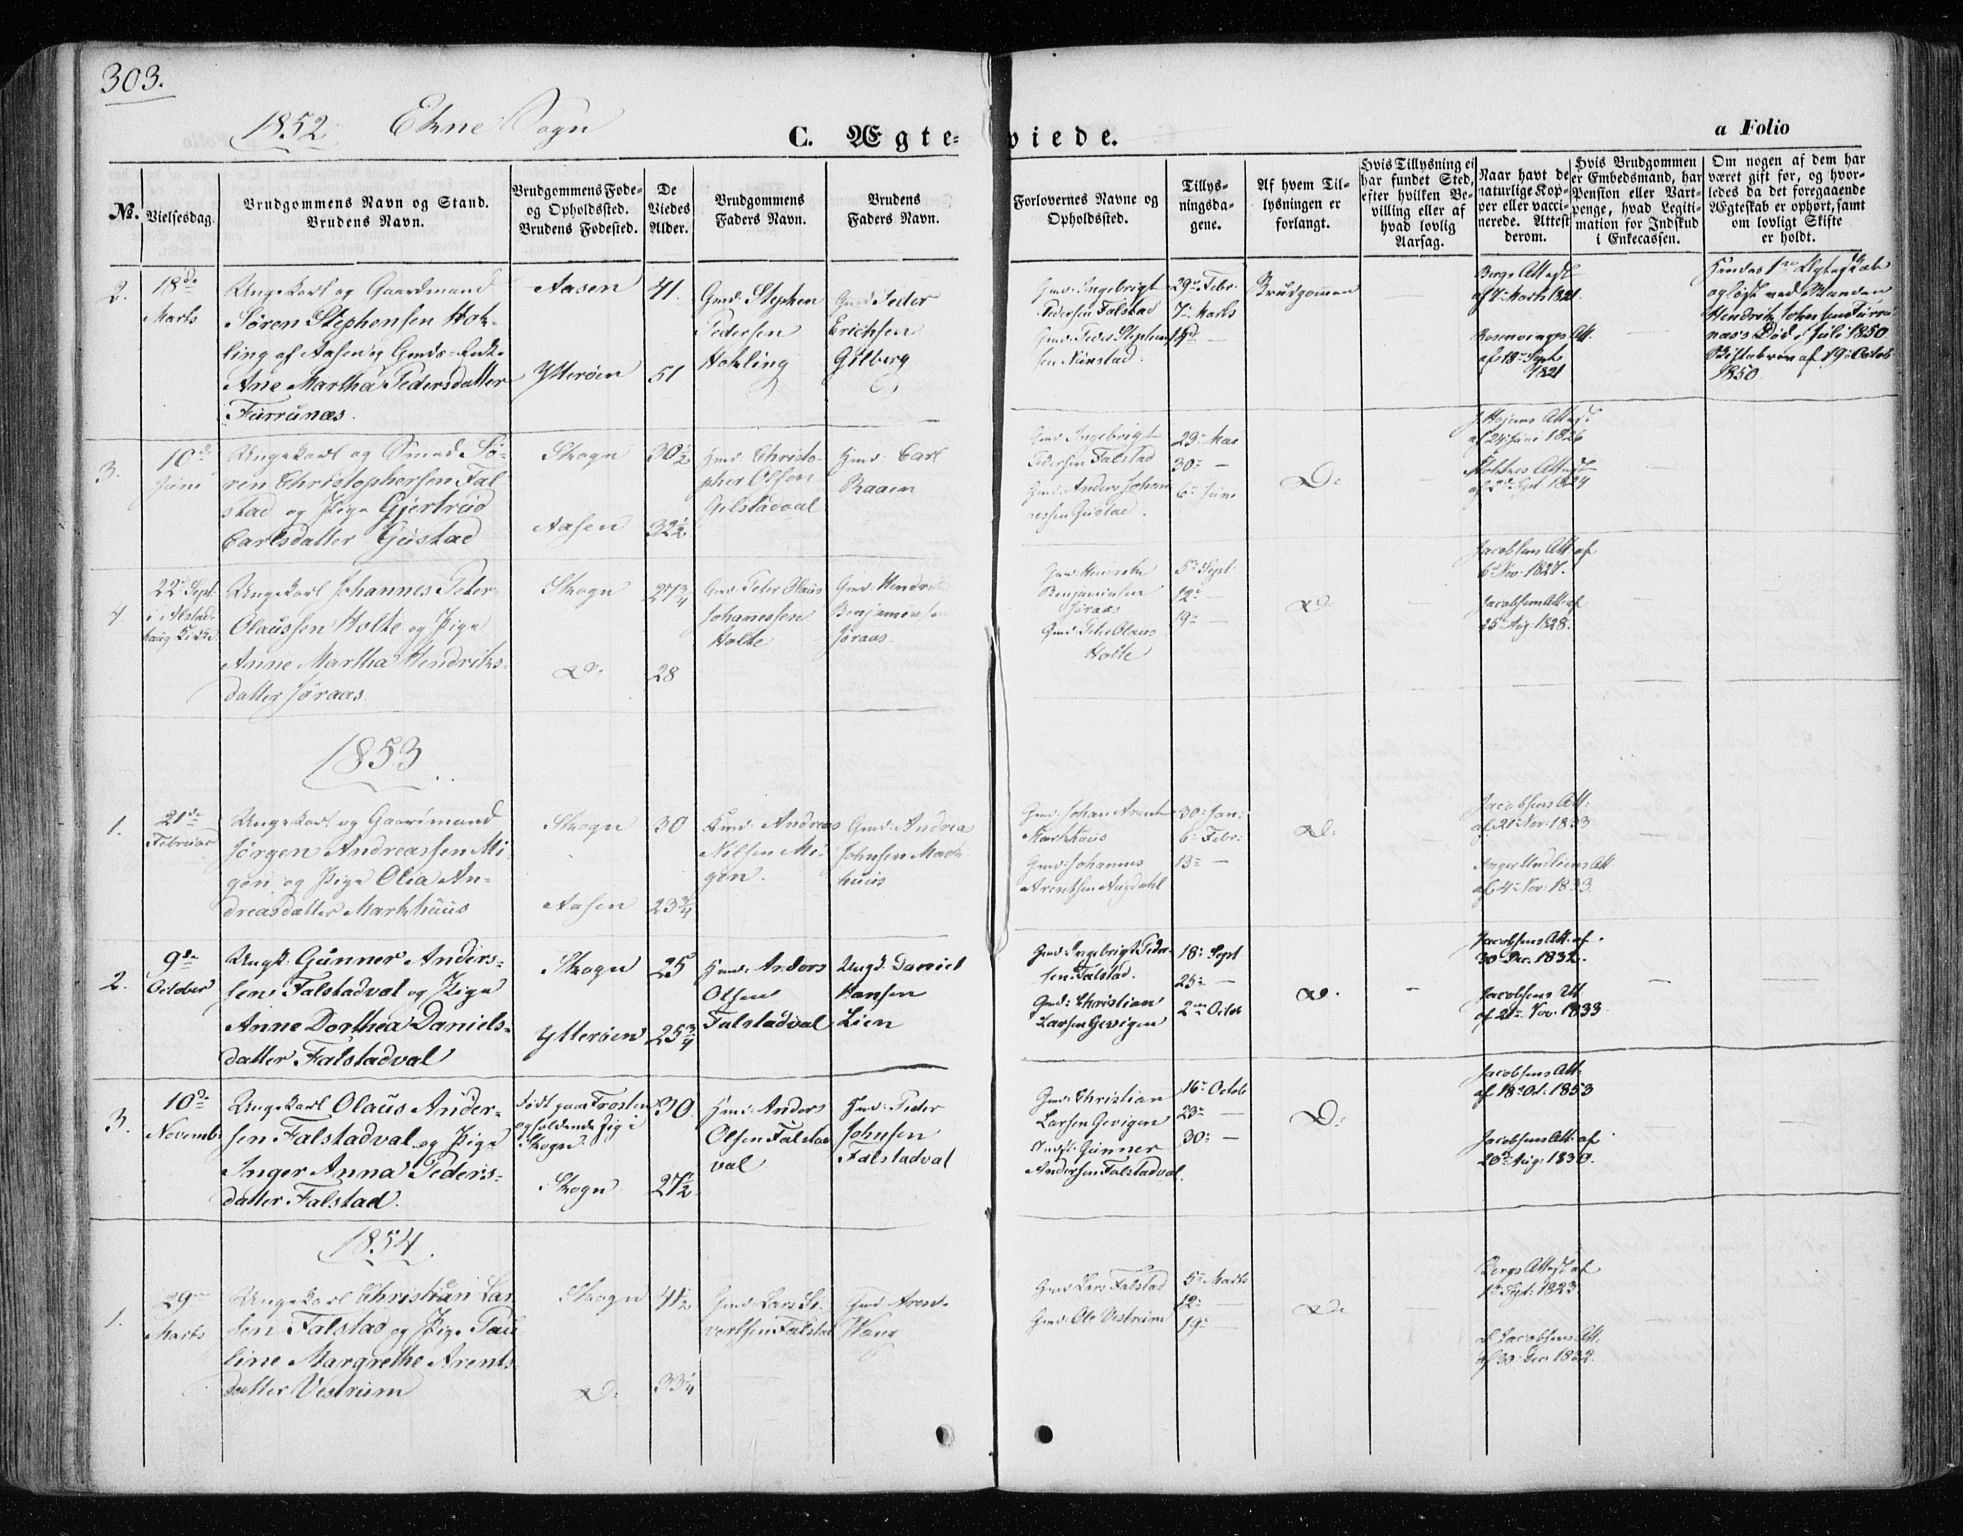 303.
1852 Ekne Sogn
C. Ægte-viede.
a Folio
No.
Vielsesdag.
Brudgommens Navn og Stand.
Brudens Navn.
Brudgommens Føde-
og Opholdssted.
Brudens Fødested.
De
Viedes
Alder.
Brudgommens
Faders Navn.
Brudens
Faders Navn.
Forlovernes Navne og
Opholdssted.
Tillys-
ningsda-
gene.
Af hvem Til-
lysningen er
forlangt.
Hvis Tillysning ei
har fundet Sted,
efter hvilken Be-
villing eller af
hvad lovlig
Aarsag.
Naar havt de
naturlige Kop-
per eller vacci-
nerede. Attest
derom.
Hvis Brudgommen
er Embedsmand, har
Pension eller Vart-
penge, hvad Legiti-
mation for Indskud
i Enkecassen.
Om nogen af dem har
været gift før, og hvor-
ledes da det foregaaende
Ægteskab er ophørt, samt
om lovligt Skifte
er holdt.
2.
18de
Marts
Ungekarl og Gaardmand
Søren Stephensen Hok-
ling af Aasen og Gmds. Enke
Ane Martha Pedersdatter
Furrunæs.
Aasen
Ytterøen
41.
51
Gmd. Stephen
Pedersen
Hokling
Gmd. Peder
Erichsen
Gilberg
Gmd. Ingebrigt
Pedersen Falstad
Gmd. Peder Stephen-
sen Nünstad
29de Febr.
7de Marts
14de —
Brudgommen
Bergs Attest
af 7de Marts 1821.
Rosenvinges Att.
af 18de Sept
1821
Hendes 1ste Ægteskab
opløst ved Manden
Hendrik Johnsen Furru-
næs's Død i Juli 1850
Skiftebrev af 19de Octob
1850
3.
10de
Juni
Ungekarl og Smed Sø-
ren Christophersen Fal
stad og Pige Gjertrud
Carlsdatter Gustad
Skogn
Aasen
30½
32½
Hmd. Christo-
pher Olsen
Gilstadval
Hmd. Carl
Raaen
Gmd. Ingebrigt
Pedersen Falstad
Gmd. Anders Johan
nessen Gustad.
23de Mai
30te —
6te Juni
Do
af 24 Juni 1826
af 2de Sept 1824
4.
22de Sept.
i Alstad-
haug Kirke
Ungekarl Johannes Peter
Olaussen Holte og Pige
Anne Martha Hendriks-
datter Jøraas
Skogn
Do
27¾
28
Gmd. Peter Olaus
Johannesen
Holte
Gmd. Hendrik
Benjaminsen
Jøraas
Gmd. Hendrik
Benjaminsen
Jøraas
Gmd. Peter Olaus
Holte
5te Sept.
12te —
19de —
Do
Jacobsens Att. af
6te Nov. 1827.
Jacobsens Att. af
25de Aug. 1828.
1853
1.
21de
Februar
Ungekarl og Gaardmand
Jørgen Andreassen Mi-
gen og Pige Olia An-
dreasdatter Markhuus
Skogn
Aasen
30
23¾
Hmd. Andreas
Nilsen Mi-
gen.
Gmd. Andreas
Johnsen Mark-
huus
Gmd. Johan Arent
Markhuus
Gmd. Johannes
Arentsen Augdahl
30te Jan:
6te Febr:
13de —
Do
Jacobsens Att.
af 21de Nov. 1833
af 4de Nov. 1833.
2.
9de
October
Ungk. Gunner Anders-
sen Falstadval og Pige
Anne Dorthea Daniels-
datter Falstadval
Skogn
Ytterøen
25
25¾
Hmd. Anders
Olsen
Falstadval
Ungk. Daniel
Hansen
Lien
Gmd. Ingebrigt Peder-
sen Falstad.
Gmd. Christian
Larsen Gevigen
18de Sept
25de —
2den Octob
Do
Jacobsens Att. af
30 Dec. 1832.
Jacobsens Att
af 21de Nov. 1833
3.
10de
Novemb.
Ungekarl Olaus Ander-
sen Falstadval og Pige
Inger Anna Peders-
datter Falstad.
Født paa Frosten
og holdende sig i
Skogn
Skogn
30.
27½
Hmd. Anders
Olsen Falstad
val
Hmd. Peder
Johnsen
Falstadval
Gmd. Christian
Larsen Gevigen
Gunner
Andersen Falstadval.
16de Octob
23de —
30te —
Do
Jacobsens Att.
af 18de Oct. 1853
Jacobsens Att. af
26de Aug. 1830.
1854.
1.
29de
Marts
Ungekarl Christian Lar
sen Falstad og Pige Pau
line Margrethe Arents
datter Vestrum
Skogn
Do
41½
33¼
Gmd. Lars Si-
vertsen Falstad
Gmd. Arent
Wang
Gmd. Lars Falstad
Gmd. Ole Vestrum
5te Marts
12te —
19de —
Do
Bergs Attest af
1ste Sept. 1823.
Jacobsens Att.
af 30 Dec 1832.